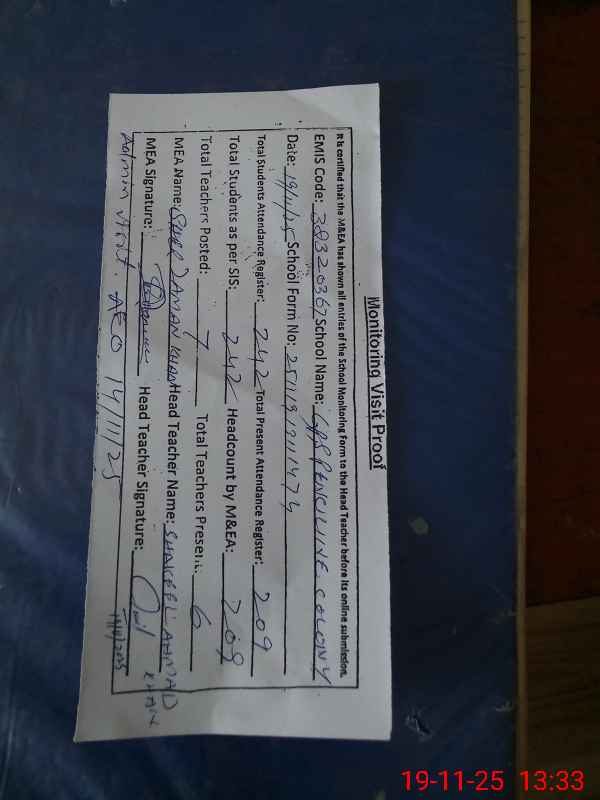 Monitoring Visit Proof
It is certified that the M&EA has shown all entries of the School Monitoring Form to the Head Teacher before its online submission.
EMIS Code: 38320367 School Name: GPS PENCILINE COLONY
Date: 19/11/25 School Form No: 2511191211473
Total Students Attendance Register: 242 Total Present Attendance Register: 209
Total Students as per SIS: 242 Headcount by M&EA: 209
Total Teachers Posted: 7 Total Teachers Present: 6
MEA Name: SHER ZAMAN KHAN Head Teacher Name: SHAKEEL AHMAD KHAN
MEA Signature: Head Teacher Signature:
Admin visit. AEO 14/11/25
19-11-25 13:33